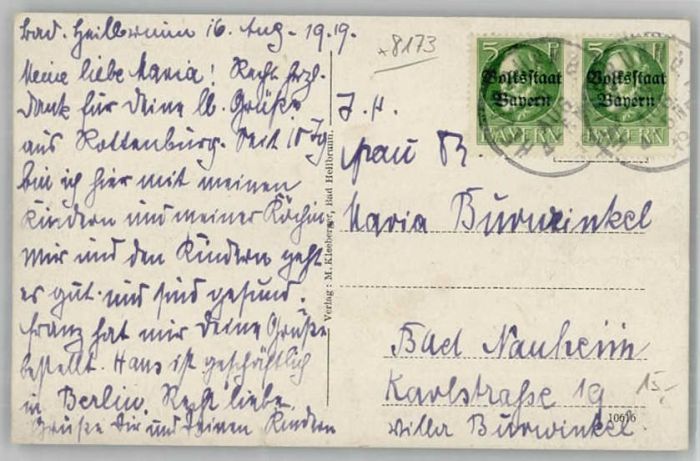 Bad. Heilbrunn 16. Aug. 1919.
Meine liebe Maria! Recht herzl.
Dank für Deine lb. Grüße
aus Rottenburg. Seit 10 Tg
bin ich hier mit meinen
Kindern und meiner Köchin
mir und den Kindern geht
es gut und sind gesund.
Franz hat mir Deine Grüße
bestellt. Hans ist geschäftlich
in Berlin. Recht liebe
Grüße Dir und Deinen Kindern
Verlag: M. Kleeberger, Bad Heilbrunn.
*8173
5 Pf
Volksstaat
Bayern
BAYERN
5 Pf
Volksstaat
Bayern
BAYERN
Frau
Maria Burwinkel
Bad Nauheim
Karlstraße 19
Villa Burwinkel.
15.-
10676